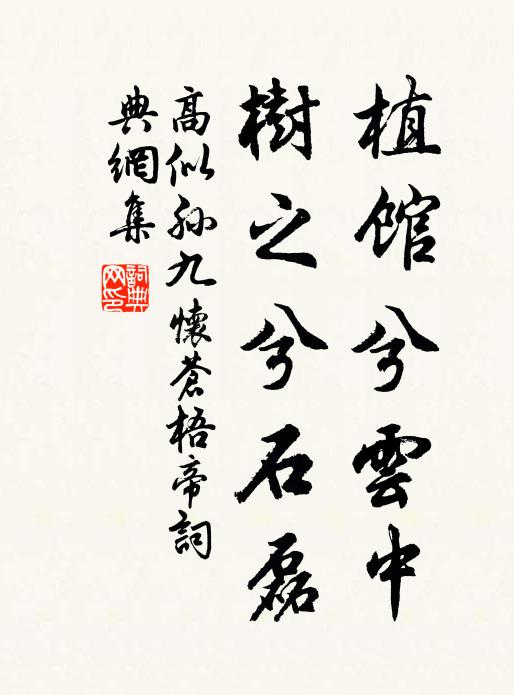 植館兮雲中
樹之兮石磊
高似孙九懷蒼梧帝詞
典網集
詞典
网印